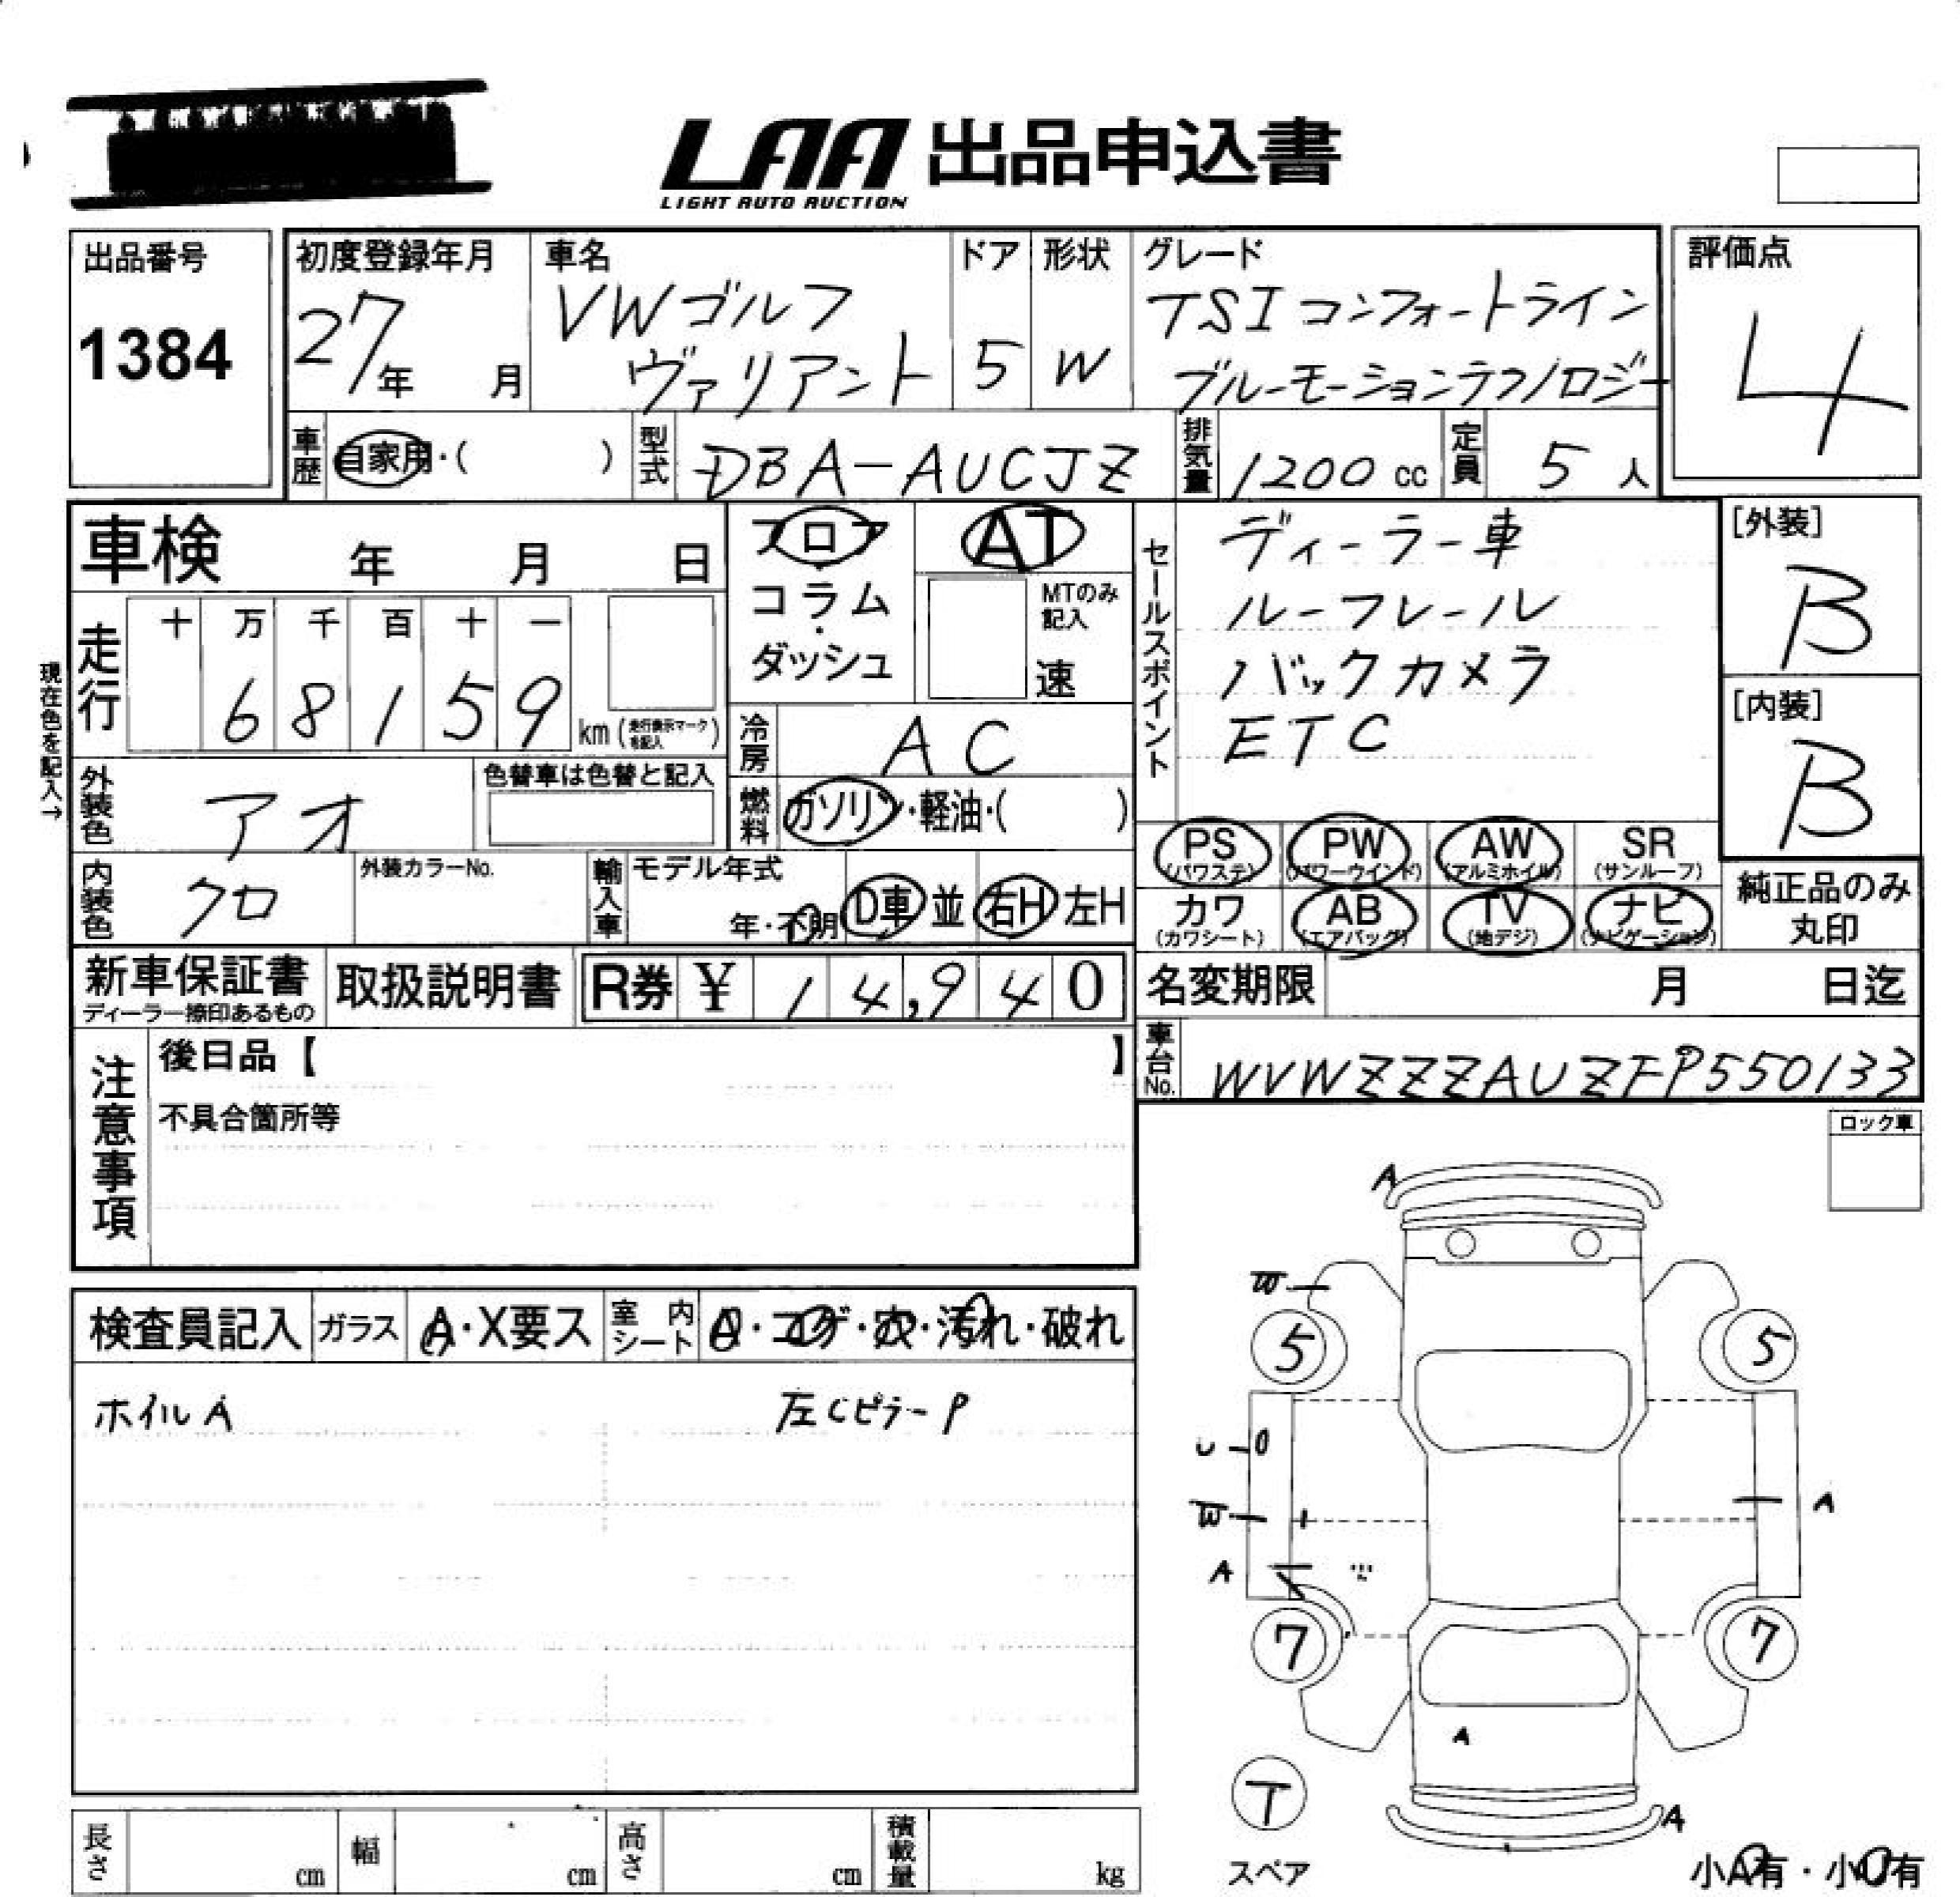 LAA 出品申込書
LIGHT AUTO AUCTION
出品番号
1384
初度登録年月
27年 月
車名
VWゴルフ
ヴァリアント
ドア
5
形状
W
グレード
TSIコンフォートライン
ブルーモーションテクノロジー
評価点
4
車歴
自家用・( )
型式
DBA-AUCJZ
排気量
1200cc
定員
5人
車検 年 月 日
フロア
コラム
・
ダッシュ
AT
MTのみ
記入
速
セールスポイント
ディーラー車
ルーフレール
バックカメラ
ETC
[外装]
B
[内装]
B
現在色を記入→
走行
十 万 千 百 十 一
6 8 1 5 9
km(走行表示マークを記入)
冷房
AC
外装色
アオ
色替車は色替と記入
燃料
ガソリン・軽油・( )
PS
(パワステ)
PW
(パワーウインド)
AW
(アルミホイル)
SR
(サンルーフ)
カワ
(カワシート)
AB
(エアバッグ)
TV
(地デジ)
ナビ
(ナビゲーション)
純正品のみ
丸印
内装色
クロ
外装カラーNo.
輸入車
モデル年式
年・不明
D車 並 右H 左H
新車保証書
ディーラー捺印あるもの
取扱説明書
R券 ¥ 14,940
名変期限 月 日迄
車台No.
WVWZZZAUZFP550133
注意事項
後日品【 】
不具合箇所等
ロック車
検査員記入
ガラス
A・X要ス
室内
シート
A・コゲ・穴・汚れ・破れ
ホイルA
左CピラーP
A
W
5
5
U
W
A
A
7
7
A
T
スペア
A
小A有・小U有
長さ cm
幅 cm
高さ cm
積載量 kg